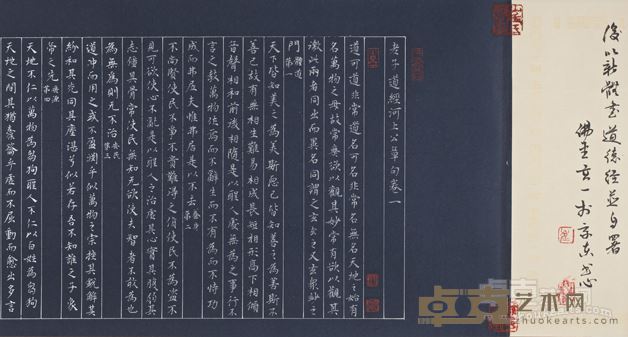 後以新體書道德經並自署
老子道經河上公章句卷一
道可道非常道名可名非常名無名天地之始有
名萬物之母故常無欲以觀其妙常有欲以觀其
徼此兩者同出而異名同謂之玄玄之又玄衆妙之
門 體道第一
天下皆知美之為美斯惡已皆知善之為善斯不
善已故有無相生難易相成長短相形高下相傾
音聲相和前後相隨是以聖人處無為之事行不
言之教萬物作焉而不辭生而不有為而不恃功
成而弗居夫惟弗居是以不去 養身第二
不尚賢使民不爭不貴難得之貨使民不為盜不
見可欲使心不亂是以聖人之治虛其心實其腹弱其
志強其骨常使民無知无欲使夫智者不敢為也
為無為則无不治 安民第三
道沖而用之或不盈淵乎似萬物之宗挫其銳解其
紛和其光同其塵湛兮似若存吾不知誰之子象
帝之先 無源第四
天地不仁以萬物為芻狗聖人不仁以百姓為芻狗
天地之間其猶橐籥乎虛而不屈動而愈出多言
卓克艺术网
zhuokearts.com